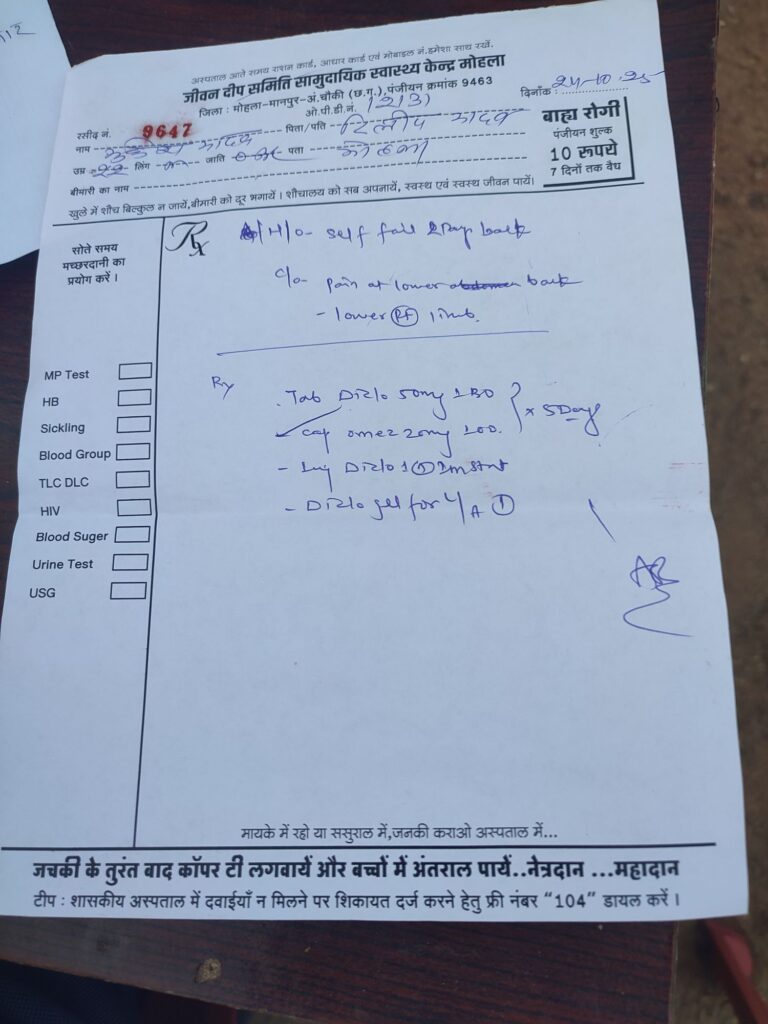 अस्पताल आते समय राशन कार्ड, आधार कार्ड एवं मोबाइल नं. हमेशा साथ रखें.
जीवन दीप समिति सामुदायिक स्वास्थ्य केन्द्र मोहला
जिला : मोहला-मानपुर-अं.चौकी (छ.ग.), पंजीयन क्रमांक 9463
दिनांक : 24-10-25
रसीद नं. 9647 ओ.पी.डी.नं.
नाम यादव पिता/पति दिलीप यादव
उम्र 22 लिंग जाति पता
बीमारी का नाम
बाह्य रोगी
पंजीयन शुल्क
10 रुपये
7 दिनों तक वैध
खुले में शौच बिल्कुल न जायें, बीमारी को दूर भगायें । शौचालय को सब अपनायें, स्वस्थ एवं स्वस्थ जीवन पायें।
सोते समय
मच्छरदानी का
प्रयोग करें ।
MP Test
HB
Sickling
Blood Group
TLC DLC
HIV
Blood Suger
Urine Test
USG
Rx
H/O- self fall 2 Day back
c/o- pain at lower back
- lower Rt limb.
Rx
. Tab Diclo 50mg 1 BD
cap omez 20mg 1 OD. } x 5 Day
- Inj Diclo 1 Im Stat
- Diclo gel for L/A 1
मायके में रहो या ससुराल में, जनकी कराओ अस्पताल में...
जचकी के तुरंत बाद कॉपर टी लगवायें और बच्चों में अंतराल पायें..नेत्रदान ...महादान
टीप : शासकीय अस्पताल में दवाईयाँ न मिलने पर शिकायत दर्ज करने हेतु फ्री नंबर "104" डायल करें ।